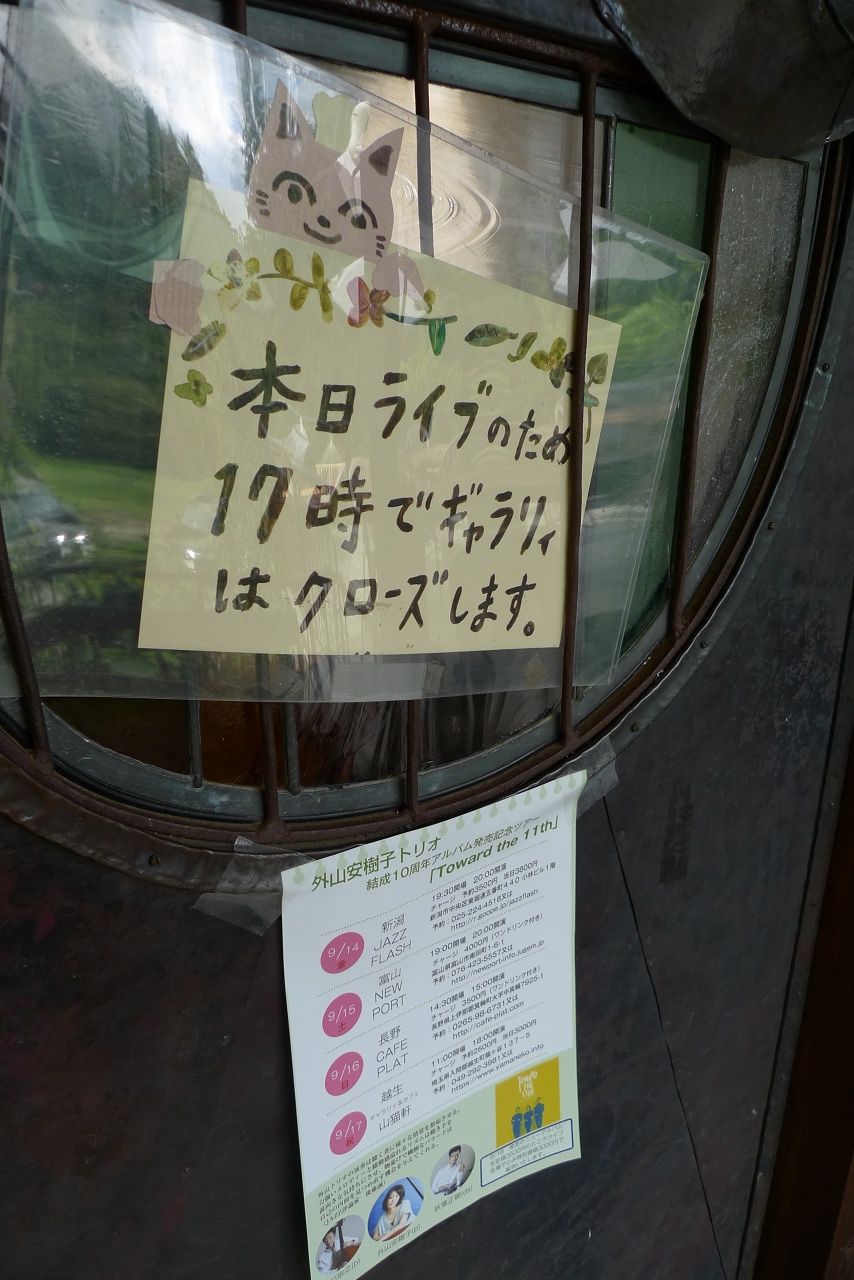 本日ライブのため
17時でギャラリィ
はクローズします。
外山安樹子トリオ
結成10周年アルバム発売記念ツアー
「Toward the 11th」
9/14
金
新潟
JAZZ
FLASH
19:30開場 20:00開演
チャージ 予約3500円 当日3800円
新潟市中央区東堀通五番町440小林ビル1階
予約:025-224-4518又は
http://r.goope.jp/jazzflash
9/15
土
富山
NEW
PORT
19:00開場 20:00開演
チャージ 4000円(ワンドリンク付き)
富山県富山市南田町1-6-1
予約:076-423-5557又は
http://newport-info.jugem.jp
9/16
日
長野
CAFE
PLAT
14:30開場 15:00開演
チャージ 3500円(ワンドリンク付き)
長野県上伊那郡箕輪町大字中箕輪7925-1
予約:0265-98-6731又は
http://cafe-plat.com
9/17
祝
越生
ギャラリィ&カフェ
山猫軒
11:00開場 18:00開演
チャージ 予約2500円 当日3000円
埼玉県入間郡越生町龍ヶ谷137-5
予約:049-292-3981又は
https://www.yamaneko.info
TOWARD
THE
11TH
外山安樹子(p)
秋葉正樹(ds)